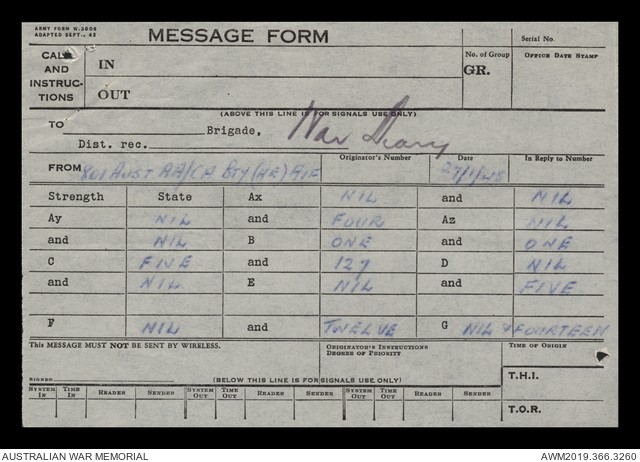 ARMY FORM W.3006
ADAPTED SEPT., 42
MESSAGE FORM
Serial No.
CALL AND INSTRUCTIONS
IN
OUT
No. of Group
GR.
OFFICE DATE STAMP
(ABOVE THIS LINE IS FOR SIGNALS USE ONLY)
TO Brigade, War Diary
Dist. rec.
FROM 801 AUST AA/CA BTY (HE) AIF
Originator's Number
Date 27/1/45
In Reply to Number
Strength State Ax NIL and NIL
Ay NIL and FOUR Az NIL
and NIL B ONE and ONE
C FIVE and 127 D NIL
and NIL E NIL and FIVE
F NIL and TWELVE G NIL & FOURTEEN
This MESSAGE MUST NOT BE SENT BY WIRELESS.
ORIGINATOR'S INSTRUCTIONS
DEGREE OF PRIORITY
TIME OF ORIGIN
T.H.I.
SIGNED (BELOW THIS LINE IS FOR SIGNALS USE ONLY)
SYSTEM IN TIME IN READER SENDER SYSTEM OUT TIME OUT READER SENDER SYSTEM OUT TIME OUT READER SENDER
T.O.R.
AUSTRALIAN WAR MEMORIAL
AWM2019.366.3260